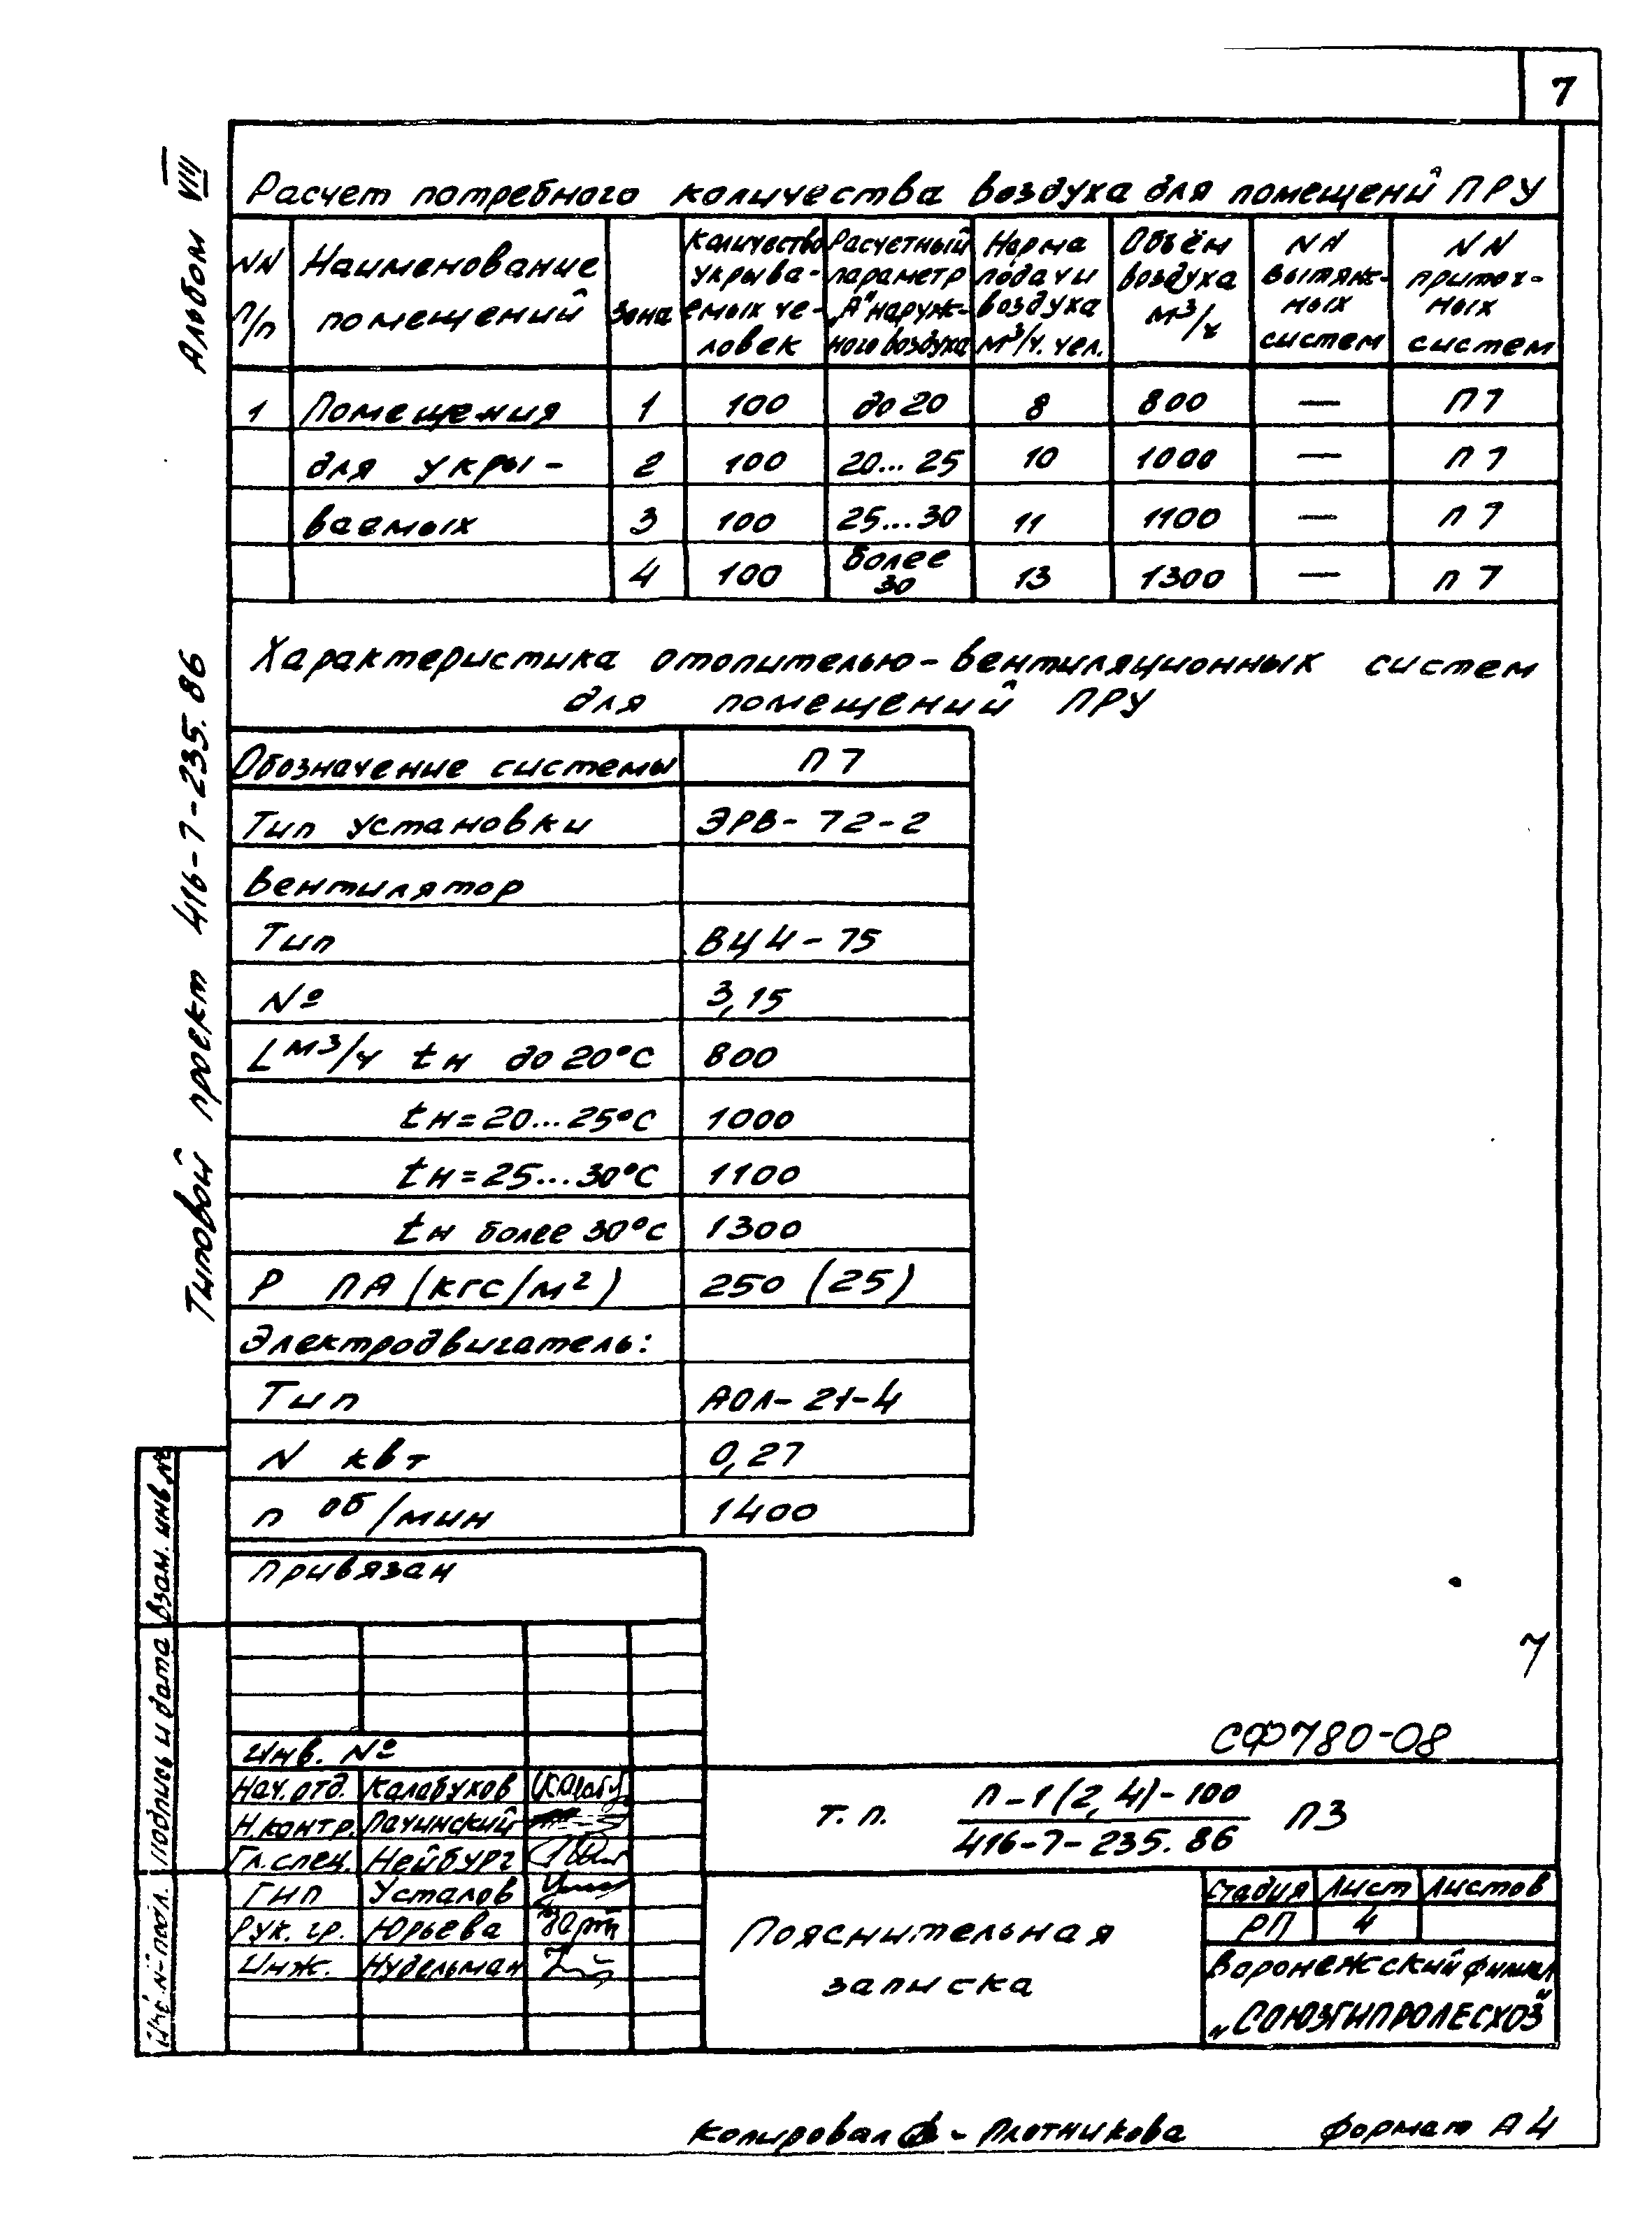 7
Альбом VIII
Типовой проект 416-7-235.86
Расчет потребного количества воздуха для помещений ПРУ
NN п/п
Наименование помещений
Зона
Количество укрыва-емых че-ловек
Расчетный параметр „А" наруж-ного воздуха
Норма подачи воздуха м³/ч. чел.
Объём воздуха м³/ч
NN вытяж-ных систем
NN приточ-ных систем
1 Помещения 1 100 до 20 8 800 — П7
для укры- 2 100 20...25 10 1000 — П7
ваемых 3 100 25...30 11 1100 — П7
4 100 более 30 13 1300 — П7
Характеристика отопительно-вентиляционных систем
для помещений ПРУ
Обозначение системы П7
Тип установки ЭРВ-72-2
Вентилятор
Тип ВЦ4-75
№ 3,15
L м³/ч tн до 20°С 800
tн=20...25°С 1000
tн=25...30°С 1100
tн более 30°С 1300
Р ПА (кгс/м²) 250 (25)
Электродвигатель:
Тип АОЛ-21-4
N квт 0,27
n об/мин 1400
Привязан
7
СФ780-08
Инв. №
Нач. отд. Калабухов
Н.контр. Пачинский
Гл.спец. Нейбург
ГИП Усталов
Рук. гр. Юрьева
Инж. Нудельман
Т. п. П-1(2,4)-100 ПЗ
416-7-235.86
Пояснительная
записка
Стадия Лист Листов
РП 4
Воронежский филиал
„СОЮЗГИПРОЛЕСХОЗ"
Взам. инв. №
Подпись и дата
Инв. № подл.
Копировал - Плотникова Формат А4